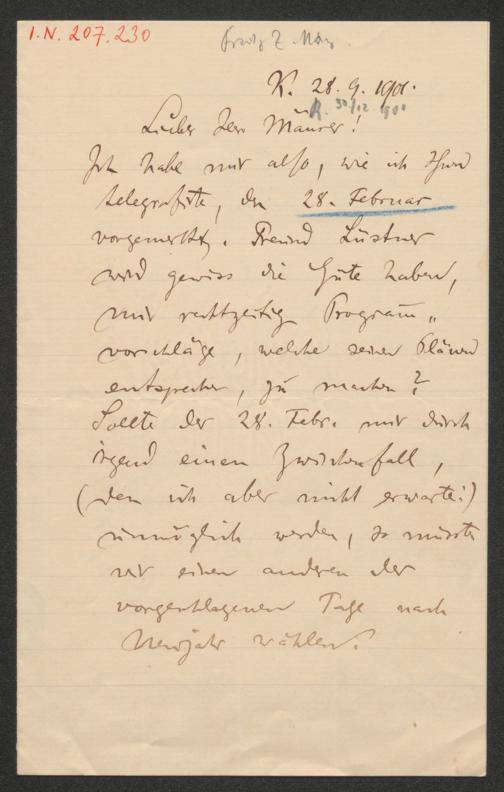 I.N. 207.230
K. 28.9.1901.
Lieber Herr Maurer!
Ich habe mir also, wie ich Ihnen
telegrafirte, den 28. Februar
vorgemerkt. Freund Lüstner
wird gewiss die Güte haben,
mir rechtzeitig Program̄„
vorschläge, welche seinen Plänen
entsprechen, zu machen?
Sollte der 28. Febr. mir durch
irgend einen Zwischenfall,
(den ich aber nicht erwarte!)
unmöglich werden, so müsste
wir einen anderen der
vorgeschlagenen Tage nach
Neujahr wählen.